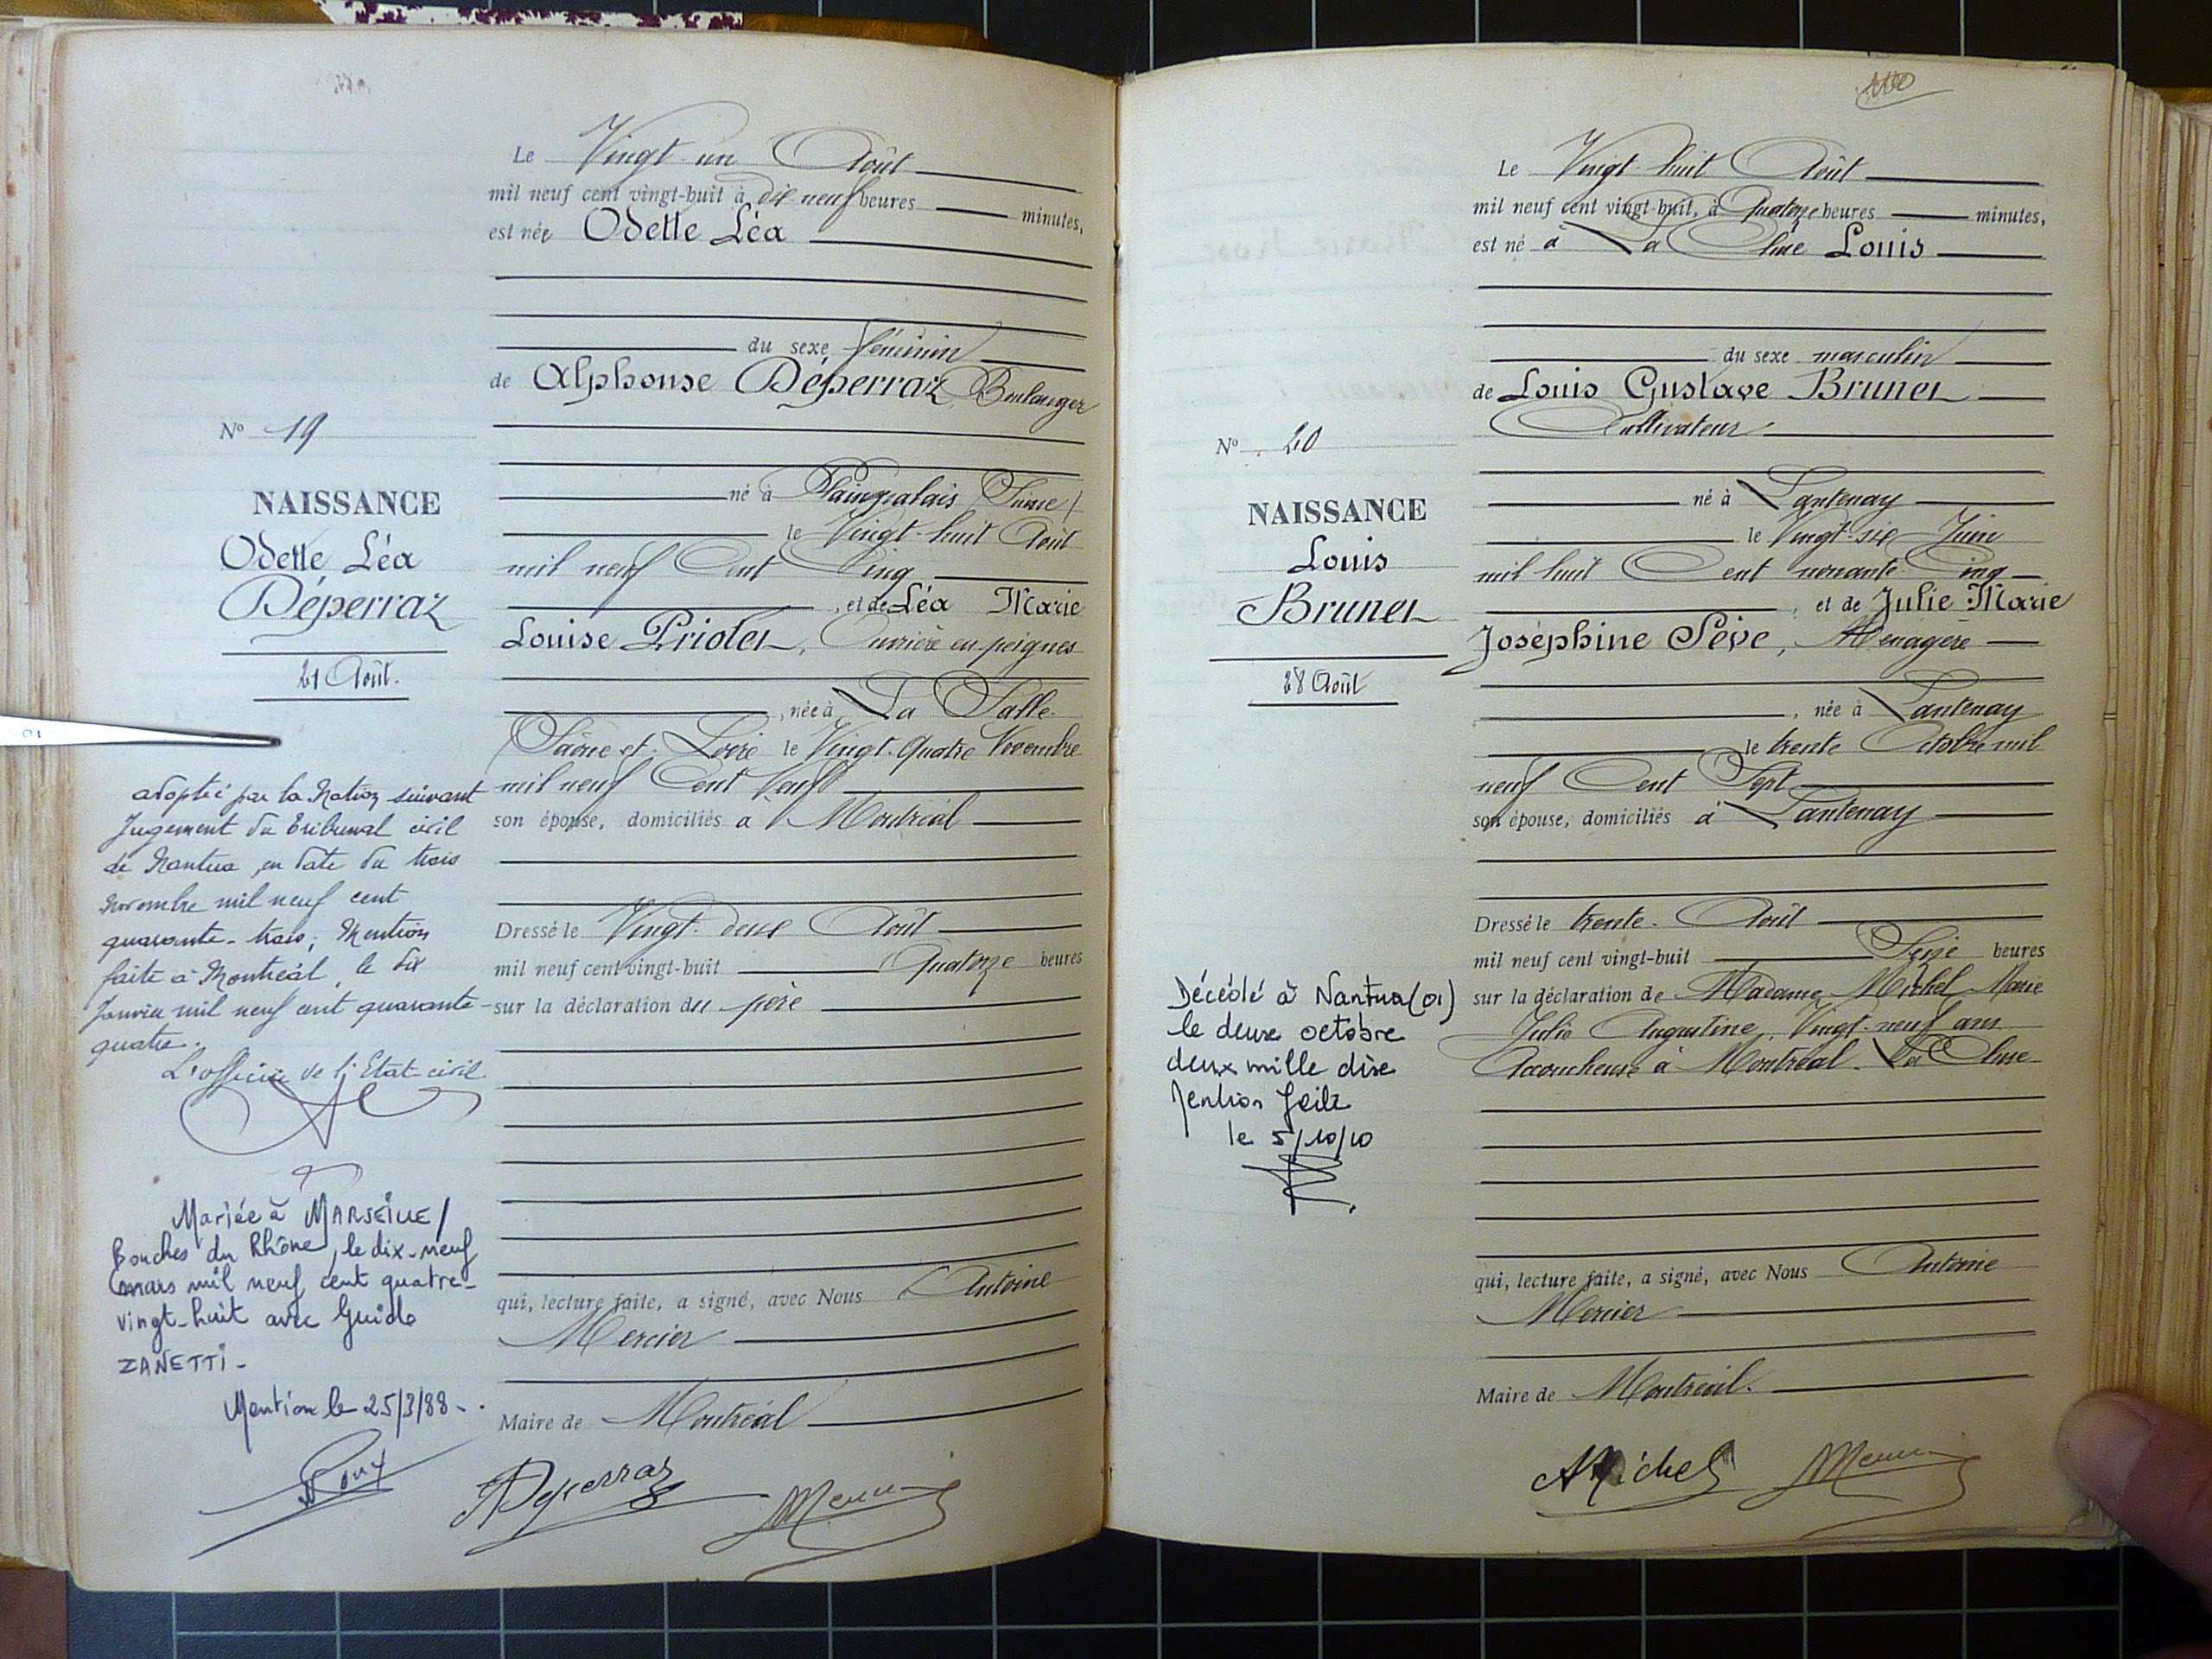 Le Vingt-un Août
mil neuf cent vingt-huit à dix neuf heures minutes,
est née Odette Léa
du sexe féminin
de Alphonse Déperraz Boulanger
né à
le Vingt-huit Août
mil neuf Cent Cinq
, et de Léa Marie
Louise Priolet, Ouvrière en peignes
, née à La Salle
(Saône et Loire le Vingt-Quatre Novembre
mil neuf Cent Neuf
son épouse, domiciliés à Montréal
Dressé le Vingt-deux Août
mil neuf cent vingt-huit Quatorze heures
sur la déclaration du père
qui, lecture faite, a signé, avec Nous Antoine
Mercier
Maire de Montréal
ADeperraz
Mercier
N° 19
NAISSANCE
Odette Léa
Déperraz
21 Août.
adoptée par la Nation suivant
Jugement du Tribunal civil
de Nantua, en date du trois
novembre mil neuf cent
quarante-trois; Mention
faite à Montréal, le dix
Janvier mil neuf cent quarante-
quatre.
L'officier de l'Etat-civil
Mariée à MARSEILLE/
Bouches du Rhône, le dix-neuf
mars mil neuf cent quatre-
vingt-huit avec Guido
ZANETTI-
Mention le 25/3/88-.
Le Vingt-huit Août
mil neuf cent vingt-huit, à Quatorze heures minutes,
est né à La Cluse Louis
du sexe masculin
de Louis Gustave Brunet
Cultivateur
né à Lantenay
le Vingt-six Juin
mil huit Cent nonante Cinq
, et de Julie Marie
Joséphine Sève, Ménagère
, née à Lantenay
le trente Octobre mil
neuf Cent Sept
son épouse, domiciliés à Lantenay
Dressé le trente Août
mil neuf cent vingt-huit Seize heures
sur la déclaration de Madame Michel Marie
Julie Augustine, Vingt-neuf ans
Accoucheuse à Montréal-La Cluse
qui, lecture faite, a signé, avec Nous Antoine
Mercier
Maire de Montréal.
AMichel
Mercier
N° 20
NAISSANCE
Louis
Brunet
28 Août
Décédé à Nantua (01)
le deux octobre
deux mille dix
Mention faite
le 5/10/10